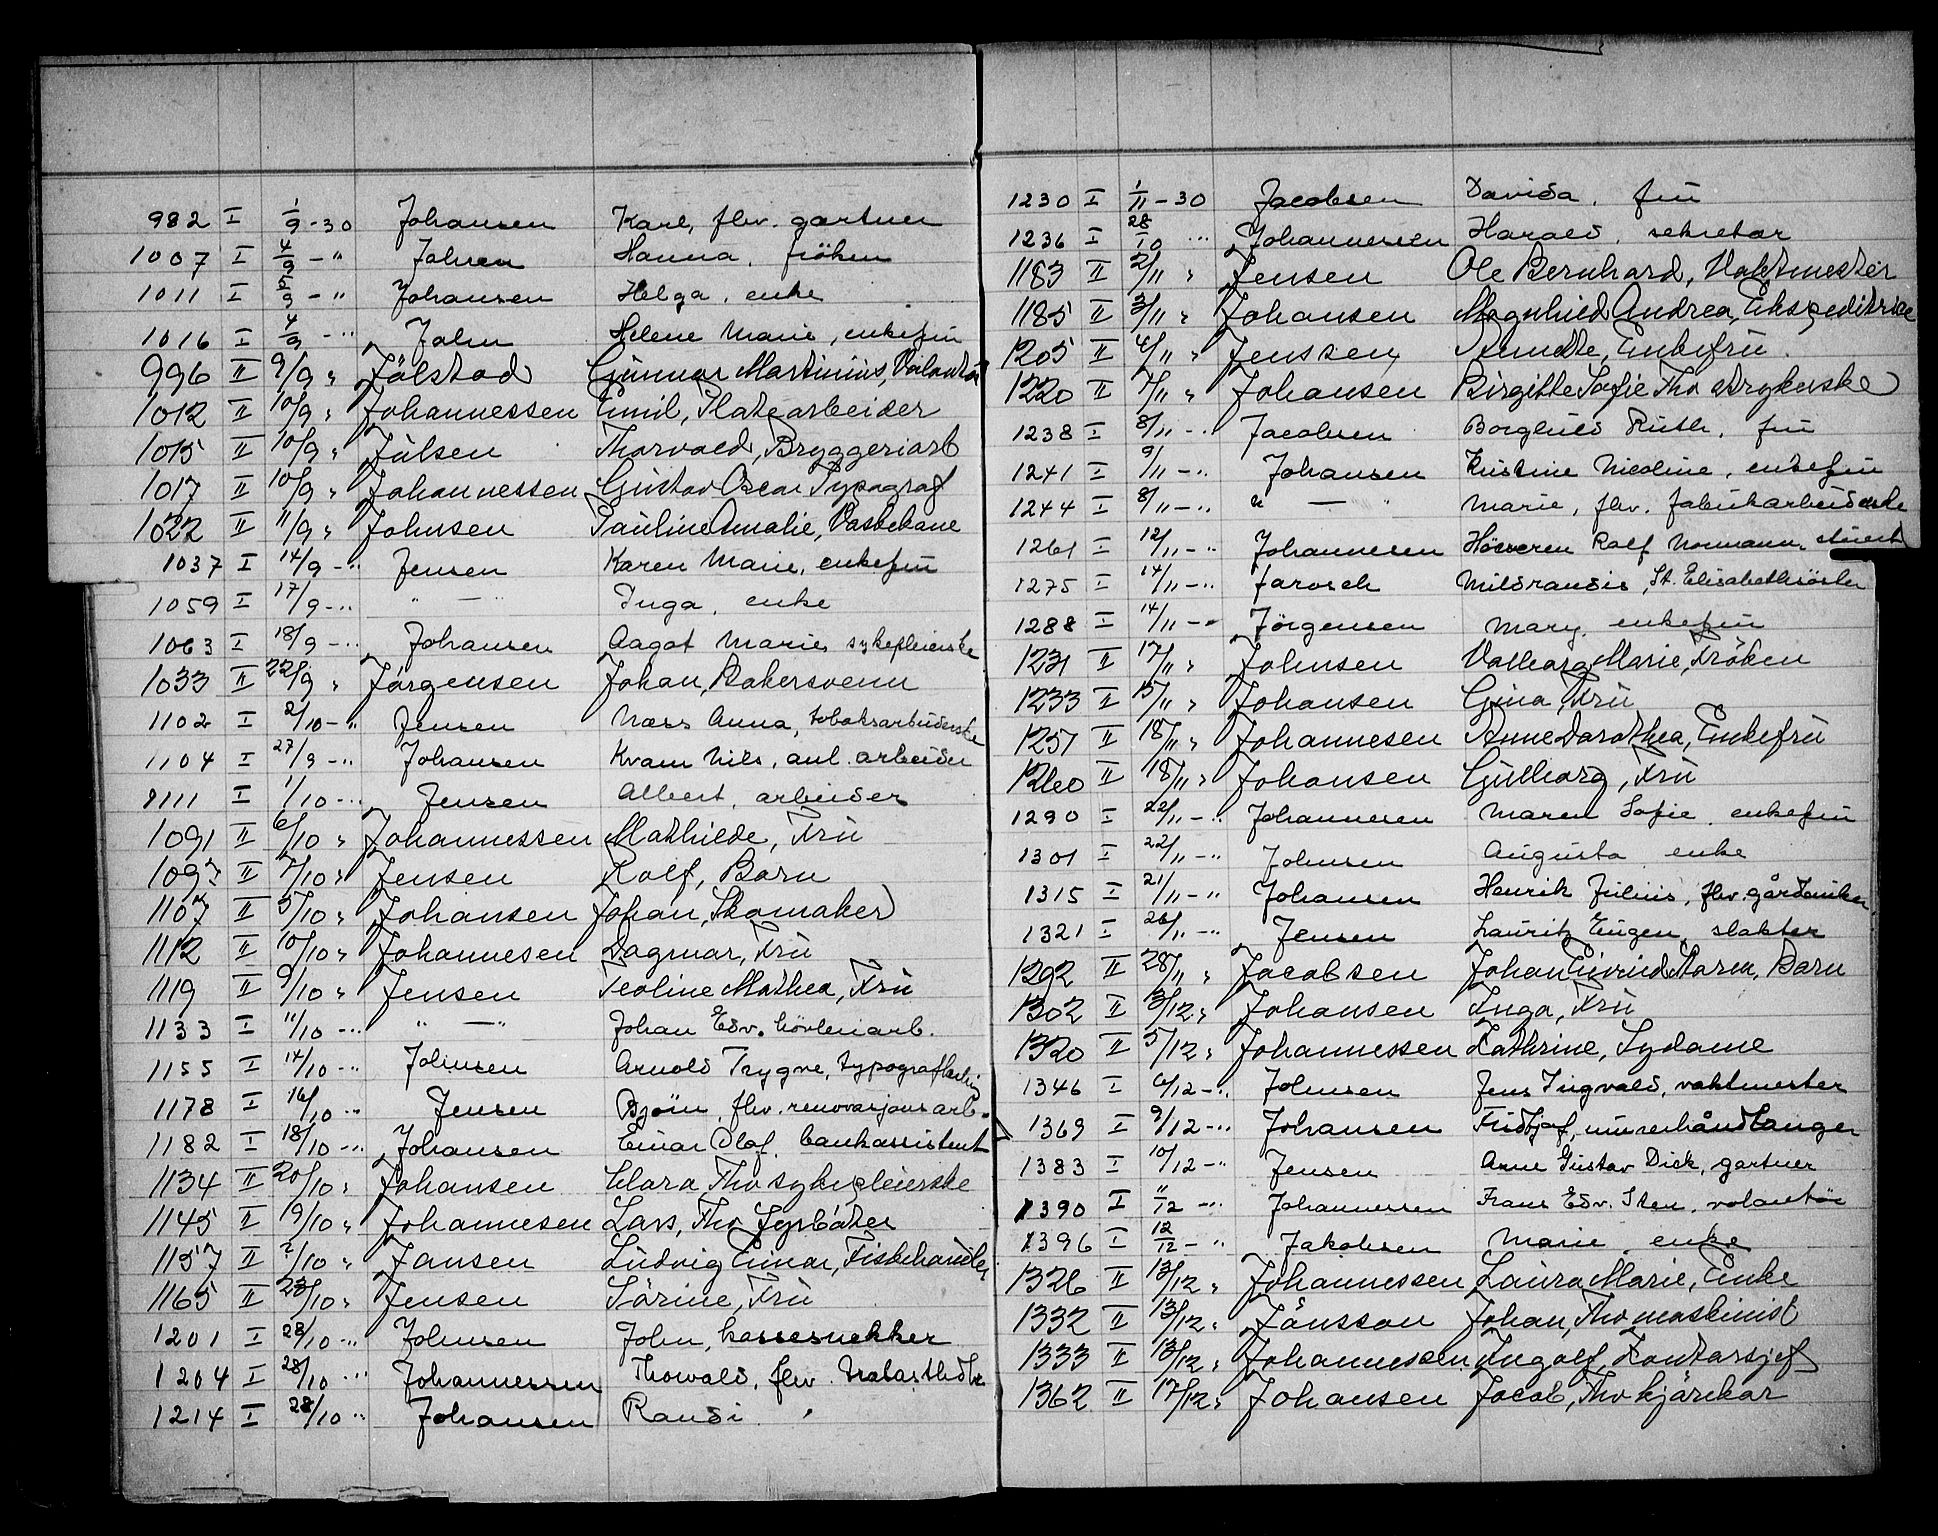 982 I 1/9-30 Johansen Karl, fhv. gartner
1007 I 4/9 - " Johnsen Hanna, fröken
1011 I 5/9 - " Johansen Helga, enke
1016 I 4/9 - " John Helene Marie, enkefru
996 II 9/9 " Jölstad Gunnar Martinius, Volontør
1012 II 10/9 " Johannessen Emil, Platearbeider
1015 II 10/9 " Julsen Thorvald, Bryggeriarb
1017 II 10/9 " Johannessen Gustav Oscar Typograf
1022 II 11/9 " Johnsen Pauline Amalie, Vaskekone
1037 I 14/9 - " Jensen Karen Marie, enkefru
1059 I 17/9 - " " — " Inga, enke
1063 I 18/9 - " Johansen Aagot Marie, sykepleierske
1033 II 22/9 " Jörgensen Johan, Bakersvenn
1102 I 2/10 - " Jensen Næss Anna, tobaksarbeiderske
1104 I 27/9 - " Johansen Kvam Nils, anl. arbeider
1111 I 1/10 - " Jensen Albert, arbeider
1091 II 6/10 " Johannessen Mathilde, Fru
1097 II 7/10 " Jensen Rolf, Barn
1107 II 5/10 " Johansen Johan, Skomaker
1112 II 10/10 " Johannesen Dagmar, Fru
1119 II 9/10 " Jensen Teoline Mathea, Fru
1133 I 11/10 - " " — " Johan Edv. hövleriarb.
1155 I 14/10 - " Johnsen Arnold Trygve, typograflærling
1178 I 16/10 " Jensen Bjørn, fhv. renovasjonsarb.
1182 I 18/10 - " Johansen Einar Olaf, bankassistent
1134 II 20/10 " Johansen Clara Fhv sykepleierske
1145 II 9/10 " Johannesen Lars, Fhv Fyrböter
1157 II ?/10 " Jansen Ludvig Einar, Fiskehandler
1165 II 23/10 " Jensen Sörine, Fru
1201 I 28/10 - " Johnsen John, kassesnekker
1204 I 28/10 - " Johannessen Thorvald, fhv.
1214 I 28/10 " Johansen Randi
1230 I 1/11 - 30 Jacobsen Davida, fru
1236 I 28/10 " Johannessen Harald, sekretær
1183 II 2/11 " Jensen Ole Bernhard, Vaktmester
1185 II 3/11 " Johansen Magnhild Andrea, Ekspeditrise
1205 II 4/11 " Jenssen Enkefru
1220 II 7/11 " Johansen Birgitte Sofie Fhv strykerske
1238 I 8/11 - " Jacobsen Borghild Ruth, fru
1241 I 9/11 - " Johansen Kristine Nicoline, enkefru
1244 I 8/11 - " " — " Marie, fhv. fabrikarbeiderske
1261 I 12/11 - " Johannesen Rolf Normann, stuert
1275 I 14/11 - " Jarosch Mildrandis, St. Elisabethsöster
1288 I 14/11 - " Jörgensen Mary, enkefru
1231 II 17/11 " Johnsen Valborg Marie, Fröken
1233 II 15/11 " Johansen Gina, Fru
1257 II 18/11 " Johannesen Anne Dorothea, Enkefru
1260 II 18/11 " Johansen Gulborg, Fru
1290 I 22/11 - " Johannesen Maren Sofie, enkefru
1301 I 22/11 - " Johnsen Augusta, enke
1315 I 21/11 - " Johansen Henrik Julius, fhv. gårdeier
1321 I 26/11 - " Jensen Lauritz Eugen, slakter
1292 II 28/11 " Jacobsen Johan Eivind Maren, Barn
1302 II 3/12 " Johansen Inga, Fru
1320 II 5/12 " Johannessen Kathrine, Sydame
1346 I 6/12 - " Johnsen Jens Ingvald, vaktmester
1369 I 9/12 - " Johansen Fridtjof, murerhåndlanger
1383 I 10/12 - " Jensen Arne Gustav Dick, gartner
1390 I 11/12 - " Johannessen Frans Edv. Sten, volontør
1396 I 12/12 - " Jakobsen Marie, enke
1326 II 13/12 " Johannessen Laura Marie, Enke
1332 II 13/12 " Jönsson Johan, Fhv maskinist
1333 II 13/12 " Johannessen Ingolf, Kontorsjef
1362 II 17/12 " Johansen Jacob, Fhv kjörekar